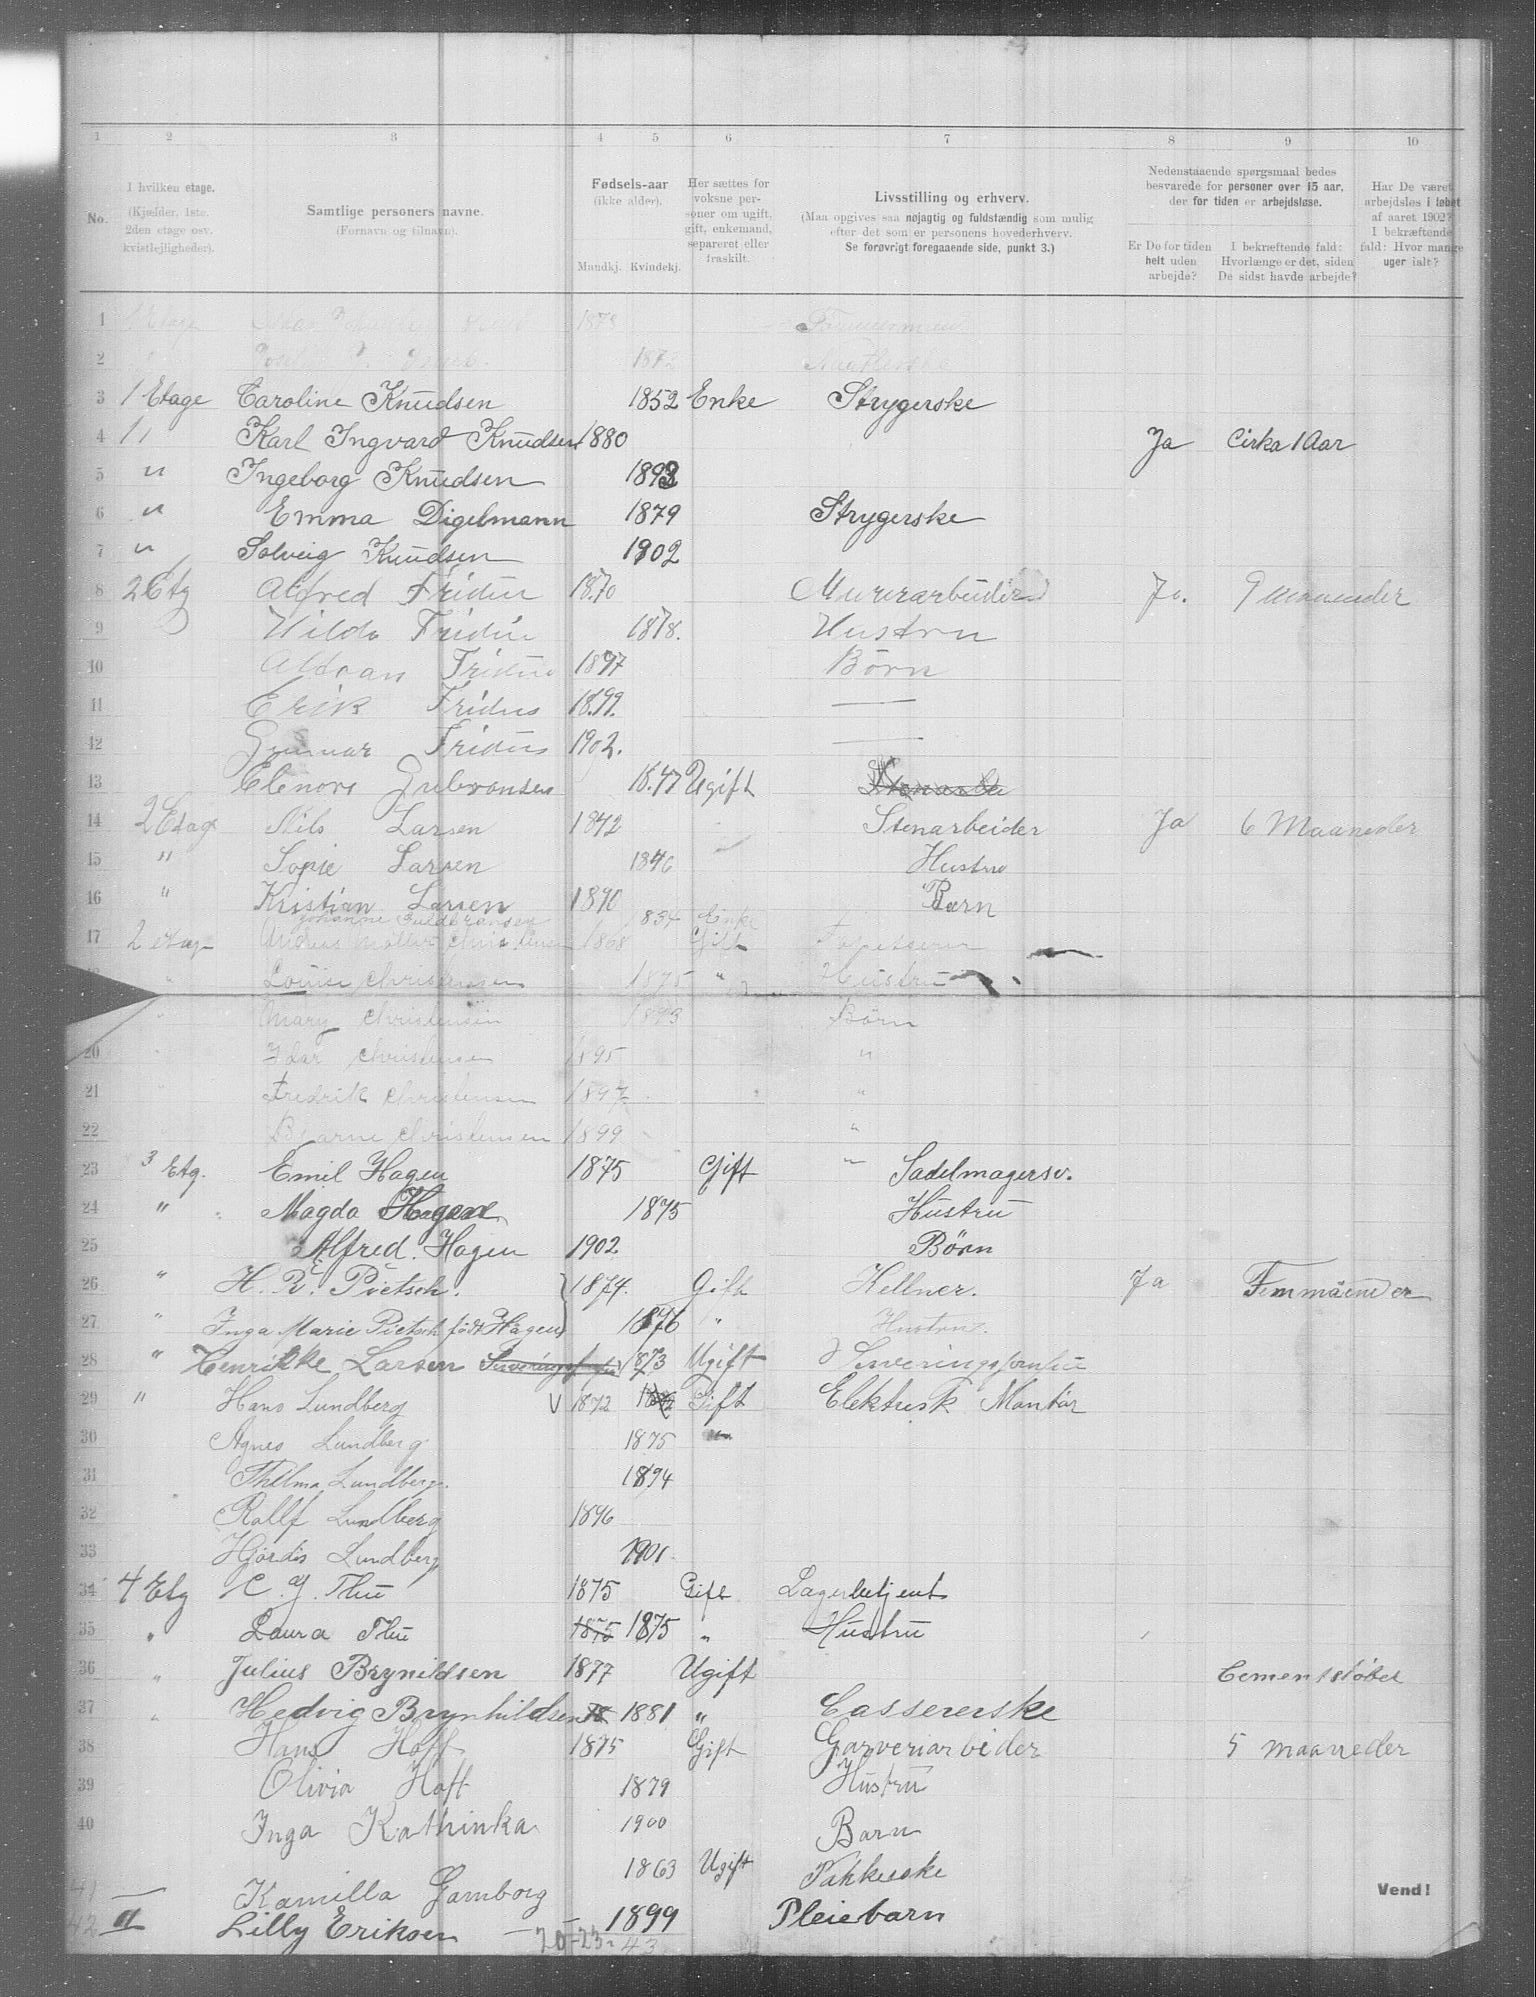 1 2 3 4 5 6 7 8 9 10
No.
I hvilken etage.
(Kjælder, 1ste,
2den etage osv.
kvistlejligheder).
Samtlige personers navne.
(Fornavn og tilnavn).
Fødsels-aar
(ikke alder).
Mandkj. Kvindekj.
Her sættes for
voksne per-
soner om ugift,
gift, enkemand,
separeret eller
fraskilt.
Livsstilling og erhverv.
(Maa opgives saa nøjagtig og fuldstændig som mulig
efter det som er personens hovederhverv.
Se forøvrigt foregaaende side, punkt 3.)
Nedenstaaende spørgsmaal bedes
besvarede for personer over 15 aar,
der for tiden er arbejdsløse.
Er De for tiden
helt uden
arbejde?
I bekræftende fald:
Hvorlænge er det, siden
De sidst havde arbejde?
Har De været
arbejdsløs i løbet
af aaret 1902?
I bekræftende
fald: Hvor mange
uger ialt?
1 Etage 1878
2 1872
3 1 Etage Caroline Knudsen 1852 Enke Strygerske
4 1 " Karl Ingvard Knudsen 1880 Ja Cirka 1 Aar
5 " Ingeborg Knudsen 1893
6 " Emma Digelmann 1879 Strygerske
7 " Solveig Knudsen 1902
8 2 Etg Alfred Fridén 1870 Murerarbeider Ja. 9 maaneder
9 Hilda Fridén 1878. Hustru
10 Fridén 1897 Børn
11 Erik Fridén 1899. —
12 Gunnar Fridén 1902. —
13 Elenora Gulbransen 1847 Ugift
14 2 Etage Nils Larsen 1842 Stenarbeider Ja 6 Maaneder
15 " Sopie Larsen 1846 Hustru
16 " Kristian Larsen 1890 Barn
Johanne Guldbransen 1834 Enke
17 2 etag Andreas Møller Christensen 1868 Gift Tapetserer
" Louise Christensen 1875 " Hustru
" Mary Christensen 1893 Børn
20 " Idar Christensen 1895 "
21 " Fredrik Christensen 1897 "
22 " Bjarne Christensen 1899 "
23 3 Etg. Emil Hagen 1875 Gift " Sadelmagersv.
24 " Magda Hagen 1875 Hustru
25 Alfred. Hagen 1902 Børn
26 " H. R. E. C. Pietsch. 1874. Gift Kellner. Ja Fem måneder
27 " Inga Marie Pietsch født Hagen 1876 " Hustru.
28 " Henrikke Larsen 1873 Ugift Serveringsjomfru
29 " Hans Lundberg 1872 Gift Elektrisk Montør
30 Agnes Lundberg 1875 "
31 Thelma Lundberg. 1894
32 Rolff Lundberg 1896
33 Hjørdis Lundberg 1901.
34 4 Etg C. J. Thu 1875 Gift Lagerbetjent
35 " Laura Thu 1875 1875 " Hustru
36 " Julius Brynildsen 1877 Ugift Cementstøber
37 " Hedvig Brynhildsen 18 1881 " Cassererske
38 Hans Hoff 1875 Gift Garveriarbeider 5 maaneder
39 Olivia Hoff 1879 Hustru
40 Inga Kathinka 1900 Barn
41 — Kamilla Gamborg 1863 Ugift Pakkerske
42 " Lilly Eriksen — 1899 Pleiebarn
20-23-43
Vend!